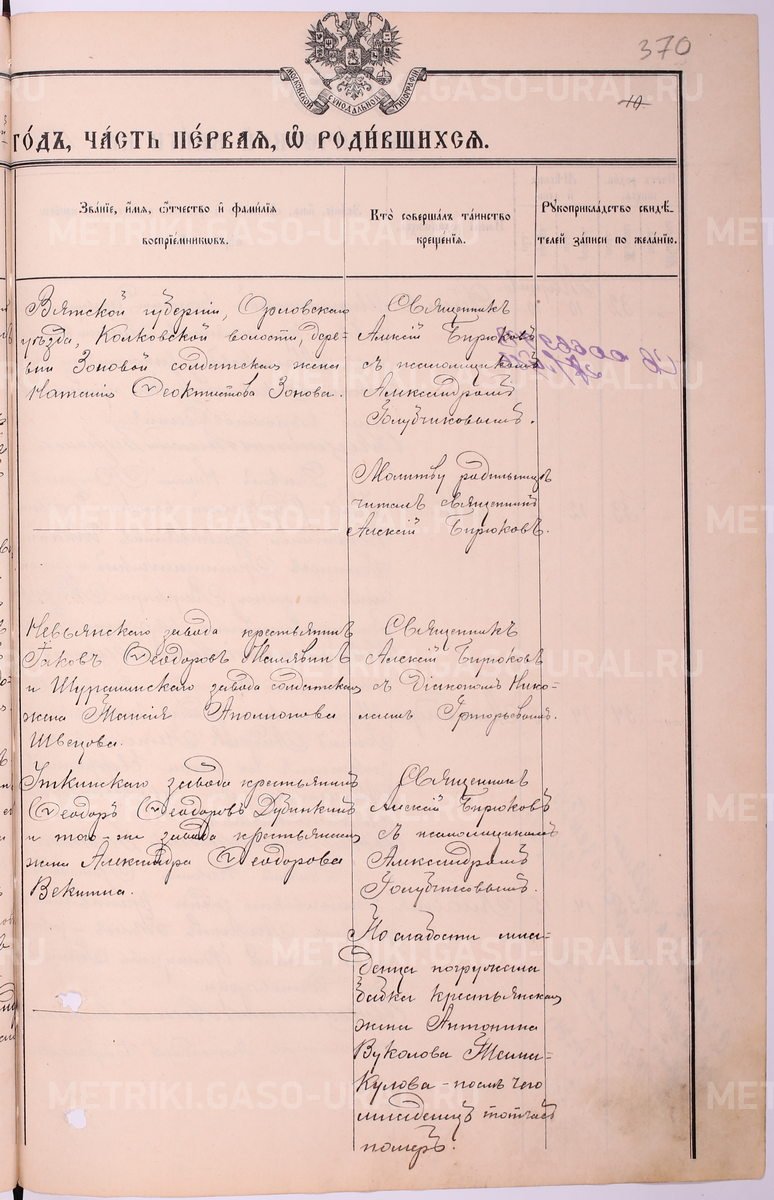 370
10
МОСКОВСКОЙ СѴНОДАЛЬНОЙ ТИПОГРАФІИ
ГОДЪ, ЧАСТЬ ПЕРВАЯ, Ѡ РОДИВШИХСЯ.
Званіе, имя, отчество и фамилія
воспріемниковъ.
Кто совершалъ таинство
крещенія.
Рукоприкладство свидѣ-
телей записи по желанію.
Вятской губерніи, Орловскаго
уѣзда, Колковской волости, дере-
вни Зоновой солдатская жена
Наталія Ѳеоктистова Зонова.
Священникъ
Алексій Бирюковъ
съ псаломщикомъ
Александромъ
Голубчиковымъ.
Молитву родильницѣ
читалъ священникъ
Алексій Бирюковъ.
Невьянскаго завода крестьянинъ
Іаковъ Ѳеодоровъ
и Шуралинскаго завода солдатская
жена Таисія Аполлонова
Швецова.
Священникъ
Алексій Бирюковъ
съ Діакономъ Нико-
лаемъ Григорьевымъ.
Уткинскаго завода крестьянинъ
Ѳеодоръ Ѳеодоровъ
и того-же завода крестьянская
жена Александра Ѳеодорова
Священникъ
Алексій Бирюковъ
съ псаломщикомъ
Александромъ
Голубчиковымъ.
По слабости мла-
денца погружала
бабка крестьянская
жена Антонина
Вуколова
послѣ чего
младенецъ тотчасъ
померъ.
METRIKI.GASO-URAL.RU